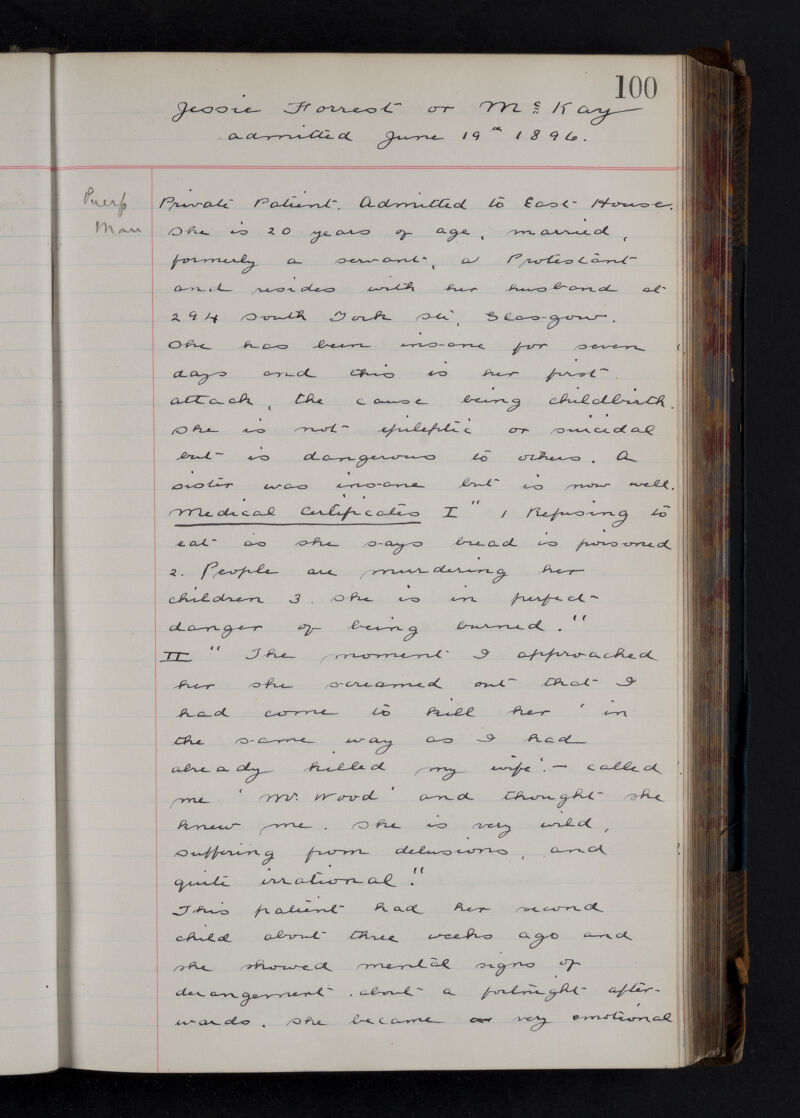 100
Jessie Forrest or McKay
admitted June 19th 1896.
Puerp
Man
Private Patient. Admitted to East House.
She is 20 years of age, married,
formerly a servant, a Protestant
and resides with her husband at
294 South York St., Glasgow.
She has been insane for seven
days and this is her first
attack, the cause being childbirth.
She is not epileptic or suicidal
but is dangerous to others. A
sister was insane but is now well.
Medical Certificates I " 1 Refusing to
eat as she says bread is poisoned
2. People are murdering her
children 3. She is in perfect
danger of being burned."
II " The moment I approached
her she screamed out that I
had come to kill her 'in
the same way as I had
already killed my wife'. – called
me 'Mr. Wood' and thought she
knew me. She is very wild,
suffering from delusions, and
quite irrational."
This patient had her second
child about three weeks ago and
she showed mental signs of
derangement about a fortnight after-
wards. She became very emotional